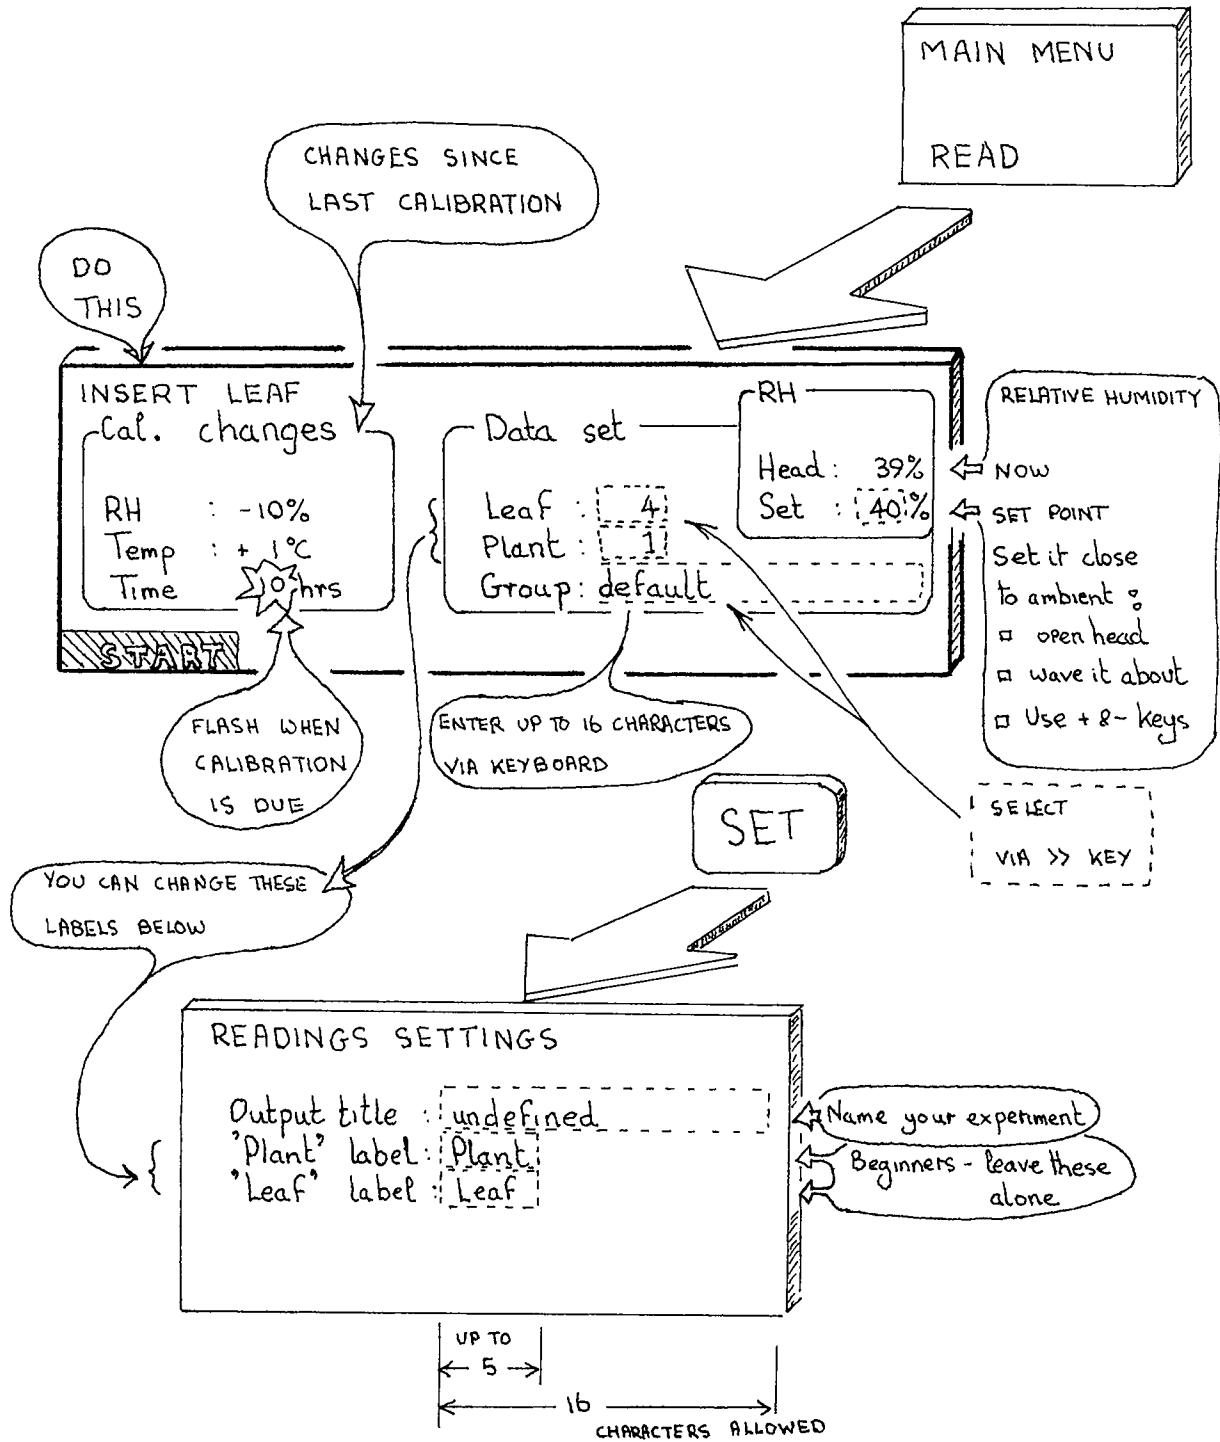 MAIN MENU
READ
CHANGES SINCE
LAST CALIBRATION
DO
THIS
INSERT LEAF
Cal. changes
RH : -10%
Temp : + 1°C
Time 0 hrs
START
Data set
Leaf : 4
Plant : 1
Group: default
RH
Head: 39%
Set : 40%
RELATIVE HUMIDITY
NOW
SET POINT
Set it close
to ambient :
open head
wave it about
Use + & - keys
FLASH WHEN
CALIBRATION
IS DUE
ENTER UP TO 16 CHARACTERS
VIA KEYBOARD
SELECT
VIA >> KEY
SET
YOU CAN CHANGE THESE
LABELS BELOW
READINGS SETTINGS
Output title : undefined
"Plant" label: Plant
"Leaf" label : Leaf
Name your experiment
Beginners - leave these
alone
UP TO
5
16
CHARACTERS ALLOWED